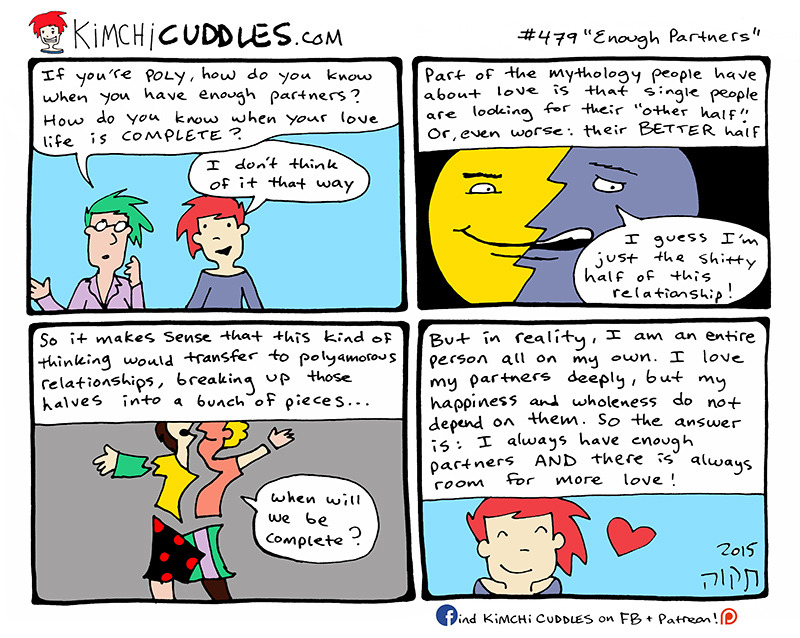 KiMCHi CUDDLES.COM
#479 "Enough Partners"
If you're POLY, how do you know
when you have enough partners?
How do you know when your love
life is COMPLETE?
I don't think
of it that way
Part of the mythology people have
about love is that single people
are looking for their "other half".
Or, even worse: their BETTER half
I guess I'm
just the shitty
half of this
relationship!
So it makes sense that this kind of
thinking would transfer to polyamorous
relationships, breaking up those
halves into a bunch of pieces...
when will
we be
complete?
But in reality, I am an entire
person all on my own. I love
my partners deeply, but my
happiness and wholeness do not
depend on them. So the answer
is: I always have enough
partners AND there is always
room for more love!
2015
תקוה
find KiMCHi CUDDLES on FB + Patreon!